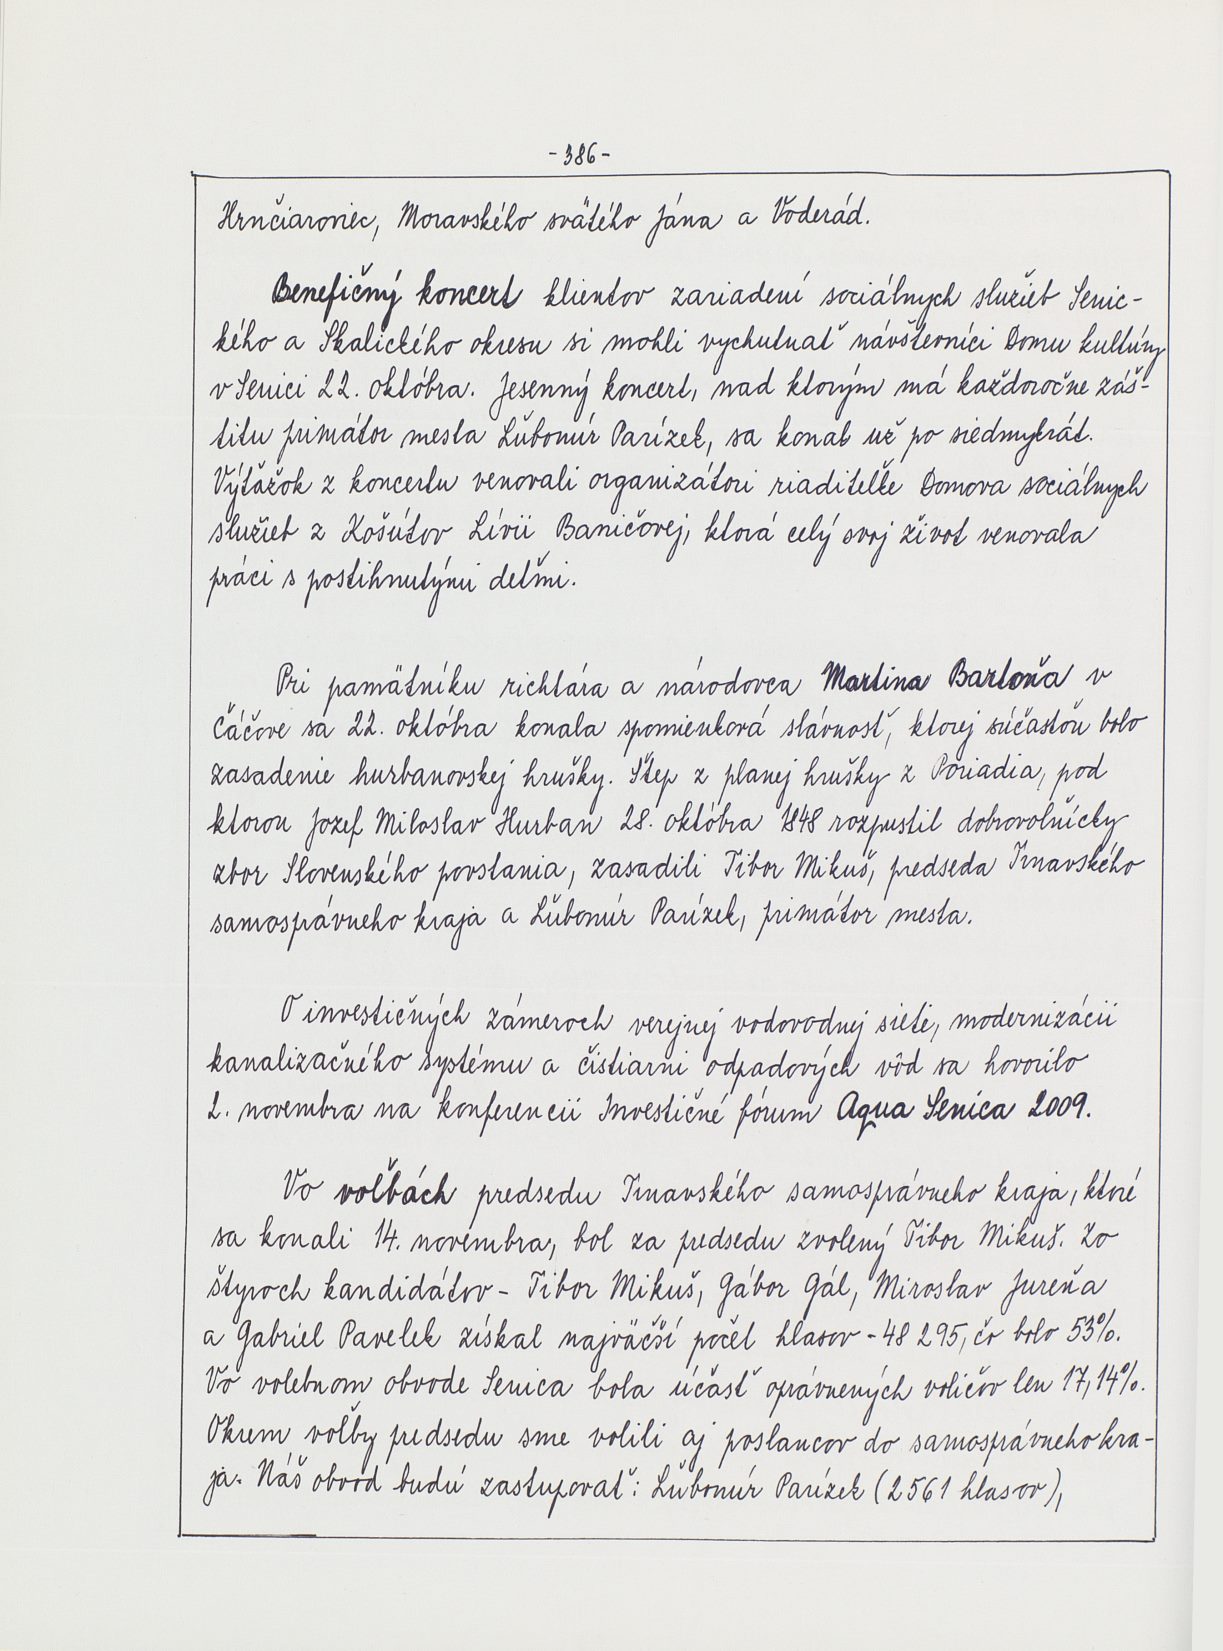 -386-
Hrnčiaroviec, Moravského svätého Jána a Voderád.
Benefičný koncert klientov zariadení sociálnych služieb Senic-
kého a Skalického okresu si mohli vychutnať návštevníci Domu kultúry
v Senici 22. októbra. Jesenný koncert, nad ktorým má každoročne záš-
titu primátor mesta Ľubomír Parízek, sa konal už po siedmykrát.
Výťažok z koncertu venovali organizátori riaditeľke Domova sociálnych
služieb z Košútov Lívii Baničovej, ktorá celý svoj život venovala
práci s postihnutými deťmi.
Pri pamätníku richtára a národovca Martina Bartoňa v
Čáčove sa 22. októbra konala spomienková slávnosť, ktorej súčasťou bolo
zasadenie hurbanovskej hrušky. Štep z planej hrušky z Poriadia, pod
ktorou Jozef Miloslav Hurban 28. októbra 1848 rozpustil dobrovoľnícky
zbor Slovenského povstania, zasadili Tibor Mikuš, predseda Trnavského
samosprávneho kraja a Ľubomír Parízek, primátor mesta.
O investičných zámeroch verejnej vodovodnej siete, modernizácii
kanalizačného systému a čistiarni odpadových vôd sa hovorilo
2. novembra na konferencii Investičné fórum Aqua Senica 2009.
Vo voľbách predsedu Trnavského samosprávneho kraja, ktoré
sa konali 14. novembra, bol za predsedu zvolený Tibor Mikuš. Zo
štyroch kandidátov - Tibor Mikuš, Gábor Gál, Miroslav Jureňa
a Gabriel Pavelek získal najväčší počet hlasov - 48 295, čo bolo 53%.
Vo volebnom obvode Senica bola účasť oprávnených voličov len 17,14%.
Okrem voľby predsedu sme volili aj poslancov do samosprávneho kra-
ja. Náš obvod budú zastupovať: Ľubomír Parízek (2561 hlasov),